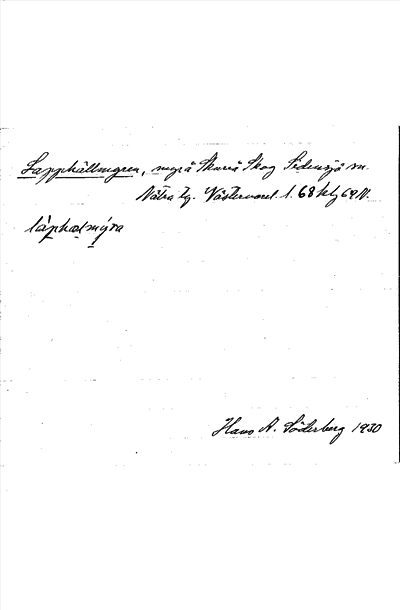 Lapphällmyren, myr å Skurrå Skog Sidensjö sn.
Nätra tg. Västernorrl. l. 68 kbj 69 N.
làphalmýra
Hans A. Söderberg 1930